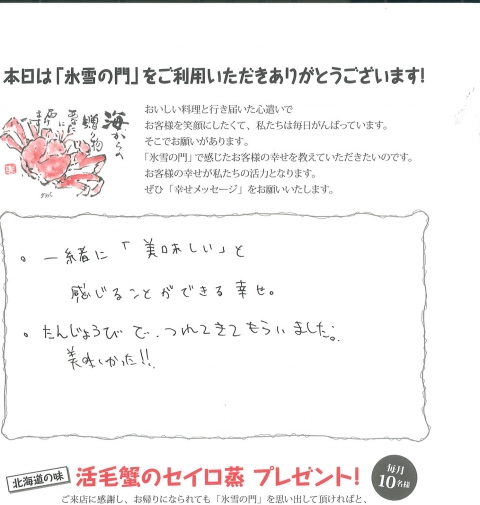 本日は「氷雪の門」をご利用いただきありがとうございます!
おいしい料理と行き届いた心遣いで
お客様を笑顔にしたくて、私たちは毎日がんばっています。
そこでお願いがあります。
「氷雪の門」で感じたお客様の幸せを教えていただきたいのです。
お客様の幸せが私たちの活力となります。
ぜひ「幸せメッセージ」をお願いいたします。
海からの
贈り物
。一緒に「美味しい」と
感じることができる幸せ。
。たんじょうびで、つれてきてもらいました。
美味しかった!!
北海道の味
活毛蟹のセイロ蒸 プレゼント!
毎月
10名様
ご来店に感謝し、お帰りになられても「氷雪の門」を思い出して頂ければと、